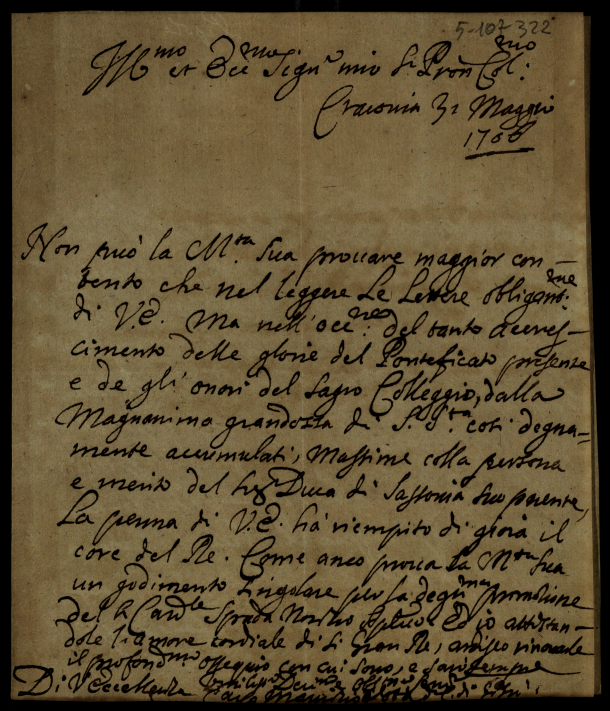 5-107-322
Ill.mo et Ecc.mo Sign.e mio S.r Pron Col.mo
Cracovia 31 Maggio
1706
Non può la M.ta Sua provare maggior con-
tento che nel leggere Le Lettere obligant.me
di V.E. Ma nell' occ.ne del tanto accres-
cimento delle glorie del Ponteficato presente
e de gli' onori del Sagro Colleggio, dalla
Magnanima grandezza di S. S.ta così degna-
mente accumulati, Massime colla persona
e merito del Duca di Sassonia suo parente,
La penna di V.E. hà riempito di gioia il
core del Re. Come anco prova la M.ta Sua
un godimento singolare per la degn.ma promotione
del S. Card.le Spada Nontio Ed io attestan-
dole l'amore cordiale di Si Gran Re, rinovarle
il profond.mo osseguio con cui sono, e sarò sempre
Di V. Eccellenza